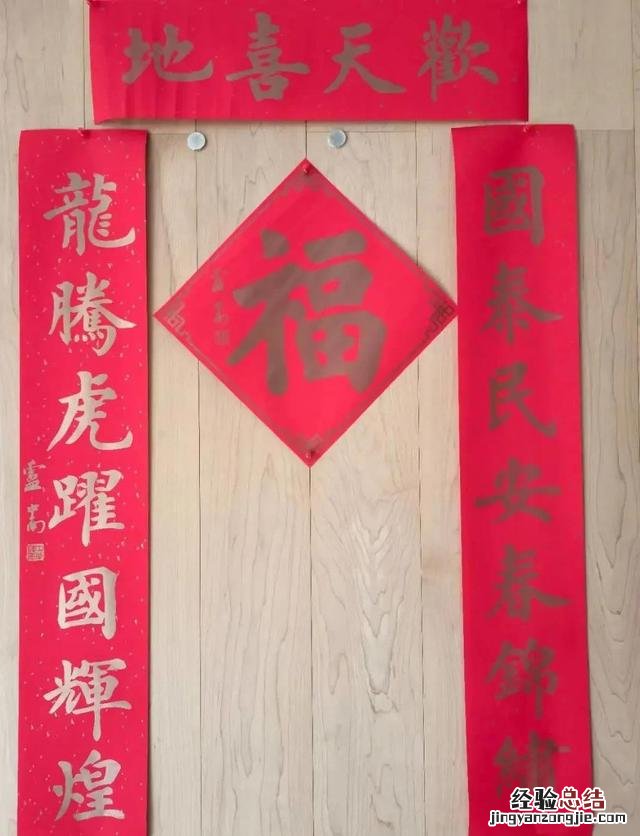 歡天喜地
國泰民安春錦繡
龍騰虎躍國輝煌
盧中南
福
经验总结
jingyanzongjie.com